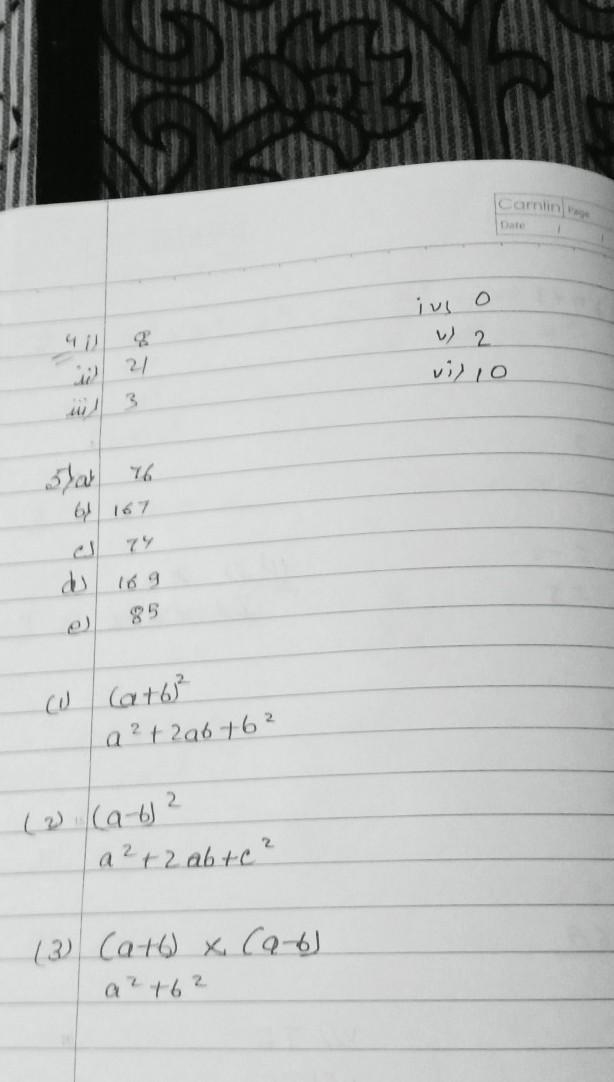 Camlin Page
Date / /
4 i) 8
ii) 21
iii) 3
iv) 0
v) 2
vi) 10
5) a) 76
b) 167
c) 74
d) 169
e) 85
(1) (a+b)²
a²+2ab+b²
(2) (a-b)²
a²+2ab+c²
(3) (a+b) × (a-b)
a²+b²